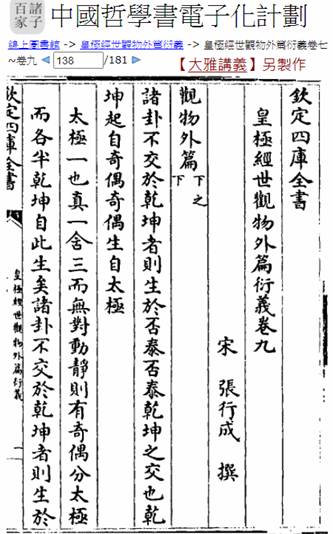 諸子
百家
中國哲學書電子化計劃
線上圖書館 -> 皇極經世觀物外篇衍義 -> 皇極經世觀物外篇衍義卷七
~卷九 138 /181 【大雅講義】另製作
欽定四庫全書
皇極經世觀物外篇衍義卷九
宋 張行成 撰
觀物外篇下之下
諸卦不交於乾坤者則生於否泰否泰乾坤之交也乾
坤起自奇偶奇偶生自太極
太極一也真一含三而無對動靜則有奇偶分太極
而各半乾坤自此生矣諸卦不交於乾坤者則生於
欽定四庫全書
皇極經世觀物外篇衍義
一